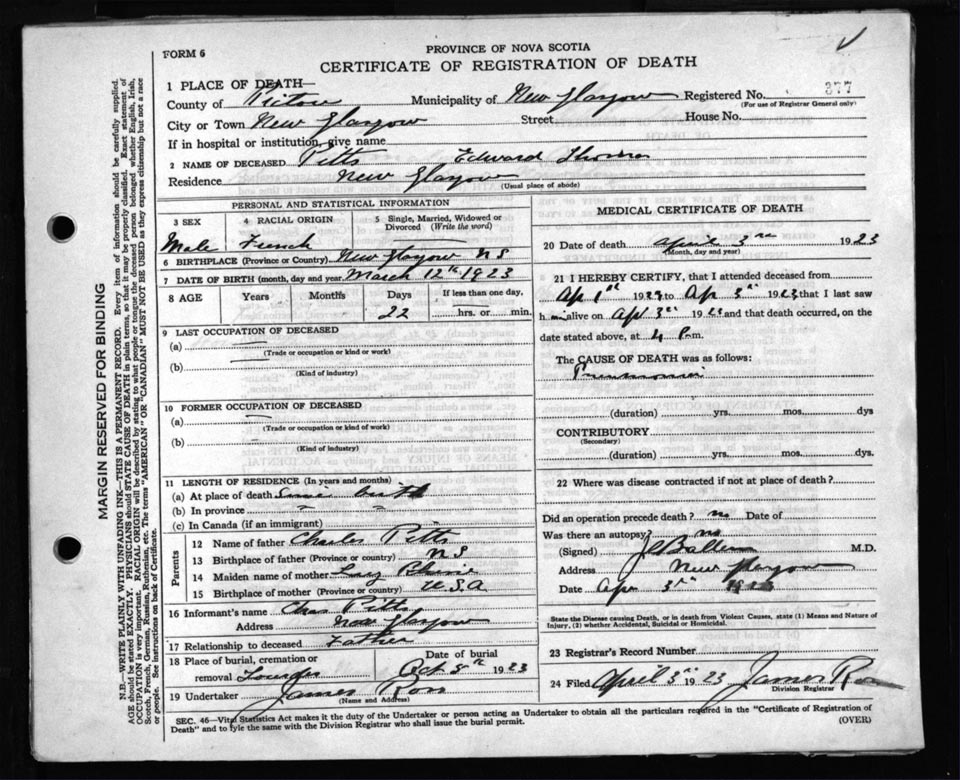 FORM 6
PROVINCE OF NOVA SCOTIA
CERTIFICATE OF REGISTRATION OF DEATH
1 PLACE OF DEATH—
County of Pictou Municipality of New Glasgow Registered No. 377
(For use of Registrar General only)
City or Town New Glasgow Street House No.
If in hospital or institution, give name
2 NAME OF DECEASED Pitts Edward Thomas
Residence New Glasgow
(Usual place of abode)
PERSONAL AND STATISTICAL INFORMATION
3 SEX 4 RACIAL ORIGIN 5 Single, Married, Widowed or Divorced (Write the word)
Male French
6 BIRTHPLACE (Province or Country) New Glasgow NS
7 DATE OF BIRTH (month, day and year) March 12th 1923
8 AGE Years Months Days If less than one day,
22 hrs. or min.
9 LAST OCCUPATION OF DECEASED
(a)
(Trade or occupation or kind or work)
(b)
(Kind of industry)
10 FORMER OCCUPATION OF DECEASED
(a)
(Trade or occupation or kind or work)
(b)
(Kind of industry)
11 LENGTH OF RESIDENCE (In years and months)
(a) At place of death Since birth
(b) In province
(c) In Canada (if an immigrant)
Parents
12 Name of father Charles Pitts
13 Birthplace of father (Province or country) NS
14 Maiden name of mother
15 Birthplace of mother (Province or country) U.S.A
16 Informant's name Chas Pitts
Address New Glasgow
17 Relationship to deceased Father
18 Place of burial, cremation or removal Lourdes Date of burial 5th 1923
19 Undertaker James Ross
(Name and Address)
MEDICAL CERTIFICATE OF DEATH
20 Date of death April 3rd 1923
(Month, day and year)
21 I HEREBY CERTIFY, that I attended deceased from
Ap 1st 1923 to Ap 3rd 1923 that I last saw
him alive on Ap 3rd 1923 and that death occurred, on the
date stated above, at 4 P m.
The CAUSE OF DEATH was as follows:
Pneumonia
(duration) yrs. mos. dys
CONTRIBUTORY
(Secondary)
(duration) yrs. mos. dys.
22 Where was disease contracted if not at place of death?
Did an operation precede death? no Date of
Was there an autopsy? no
(Signed) M.D.
Address New Glasgow
Date Apr 3rd 1923
State the Disease causing Death, or in death from Violent Causes, state (1) Means and Nature of Injury, (2) whether Accidental, Suicidal or Homicidal.
23 Registrar's Record Number
24 Filed April 3rd 1923 James Ross
Division Registrar
SEC. 46—Vital Statistics Act makes it the duty of the Undertaker or person acting as Undertaker to obtain all the particulars required in the "Certificate of Registration of
Death" and to fyle the same with the Division Registrar who shall issue the burial permit. (OVER)
MARGIN RESERVED FOR BINDING
N.B.—WRITE PLAINLY WITH UNFADING INK—THIS IS A PERMANENT RECORD. Every item of information should be carefully supplied.
AGE should be stated EXACTLY. PHYSICIANS should STATE CAUSE OF DEATH in plain terms, so that it may be properly classified. Exact statement of
OCCUPATION is very important. RACIAL ORIGIN will be described by stating to what people or tongue the deceased person belonged whether English, Irish,
Scotch, French, German, Russian, Ruthenian, etc. The terms "AMERICAN" OR "CANADIAN" MUST NOT BE USED as they express citizenship but not a race
or people. See instructions on back of Certificate.